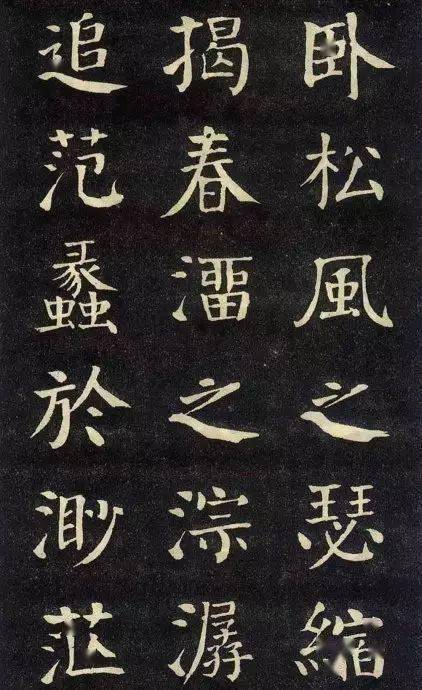 卧松風之瑟縮
揭春溜之淙潺
追范蠡於渺茫